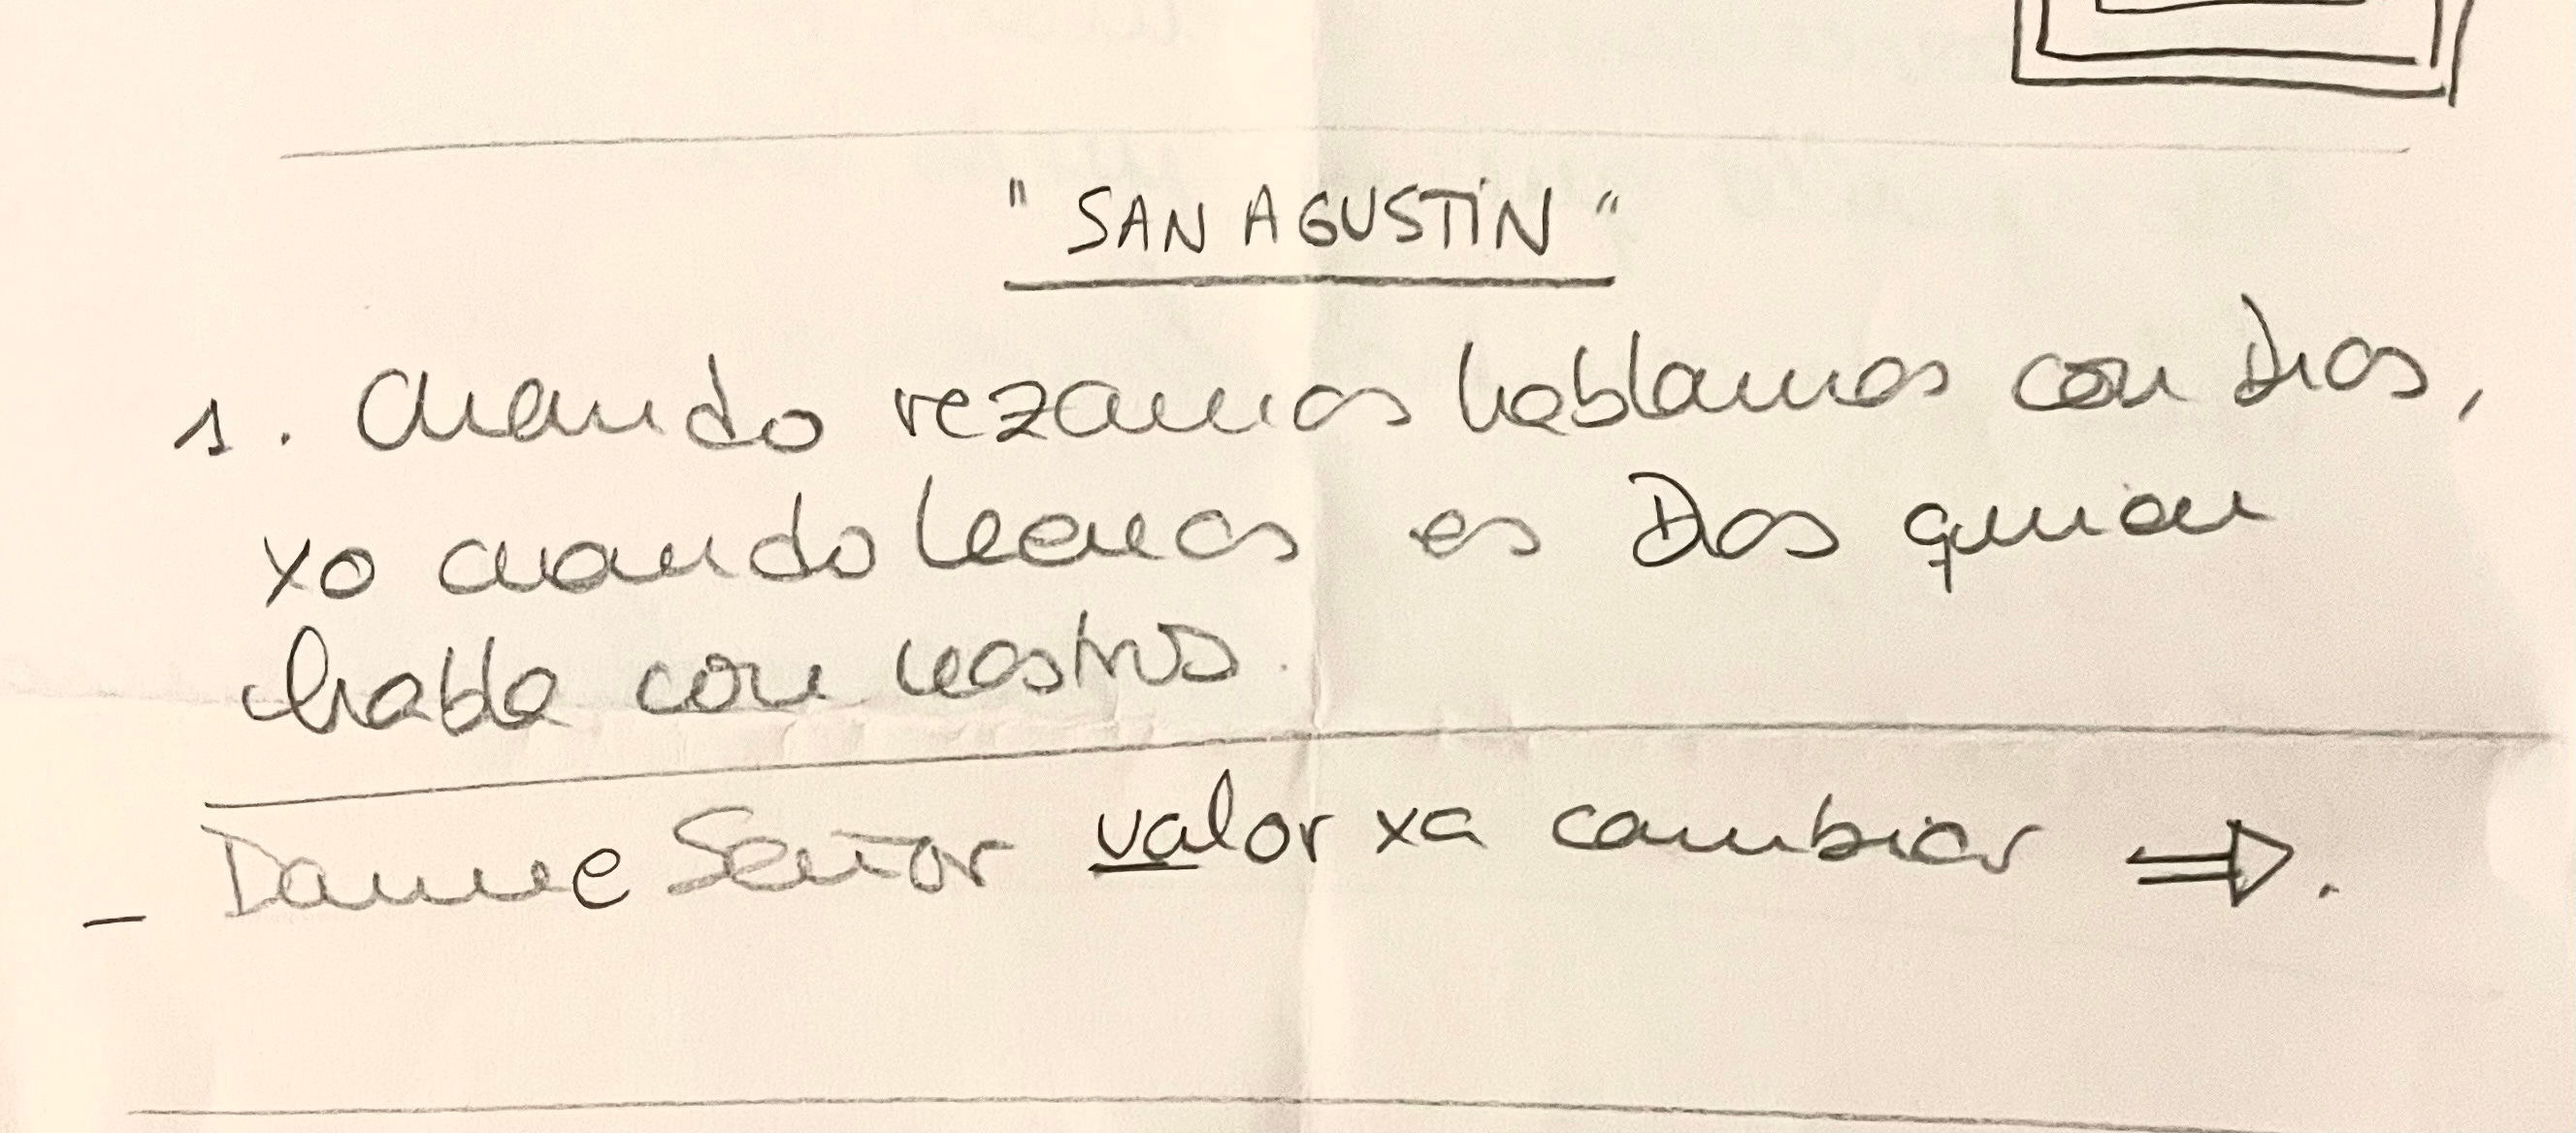 " SAN AGUSTÍN "
1. Cuando rezamos hablamos con Dios,
xo cuando leemos es Dios quien
habla con nostros.
- Dame Señor valor xa cambiar ⇒.